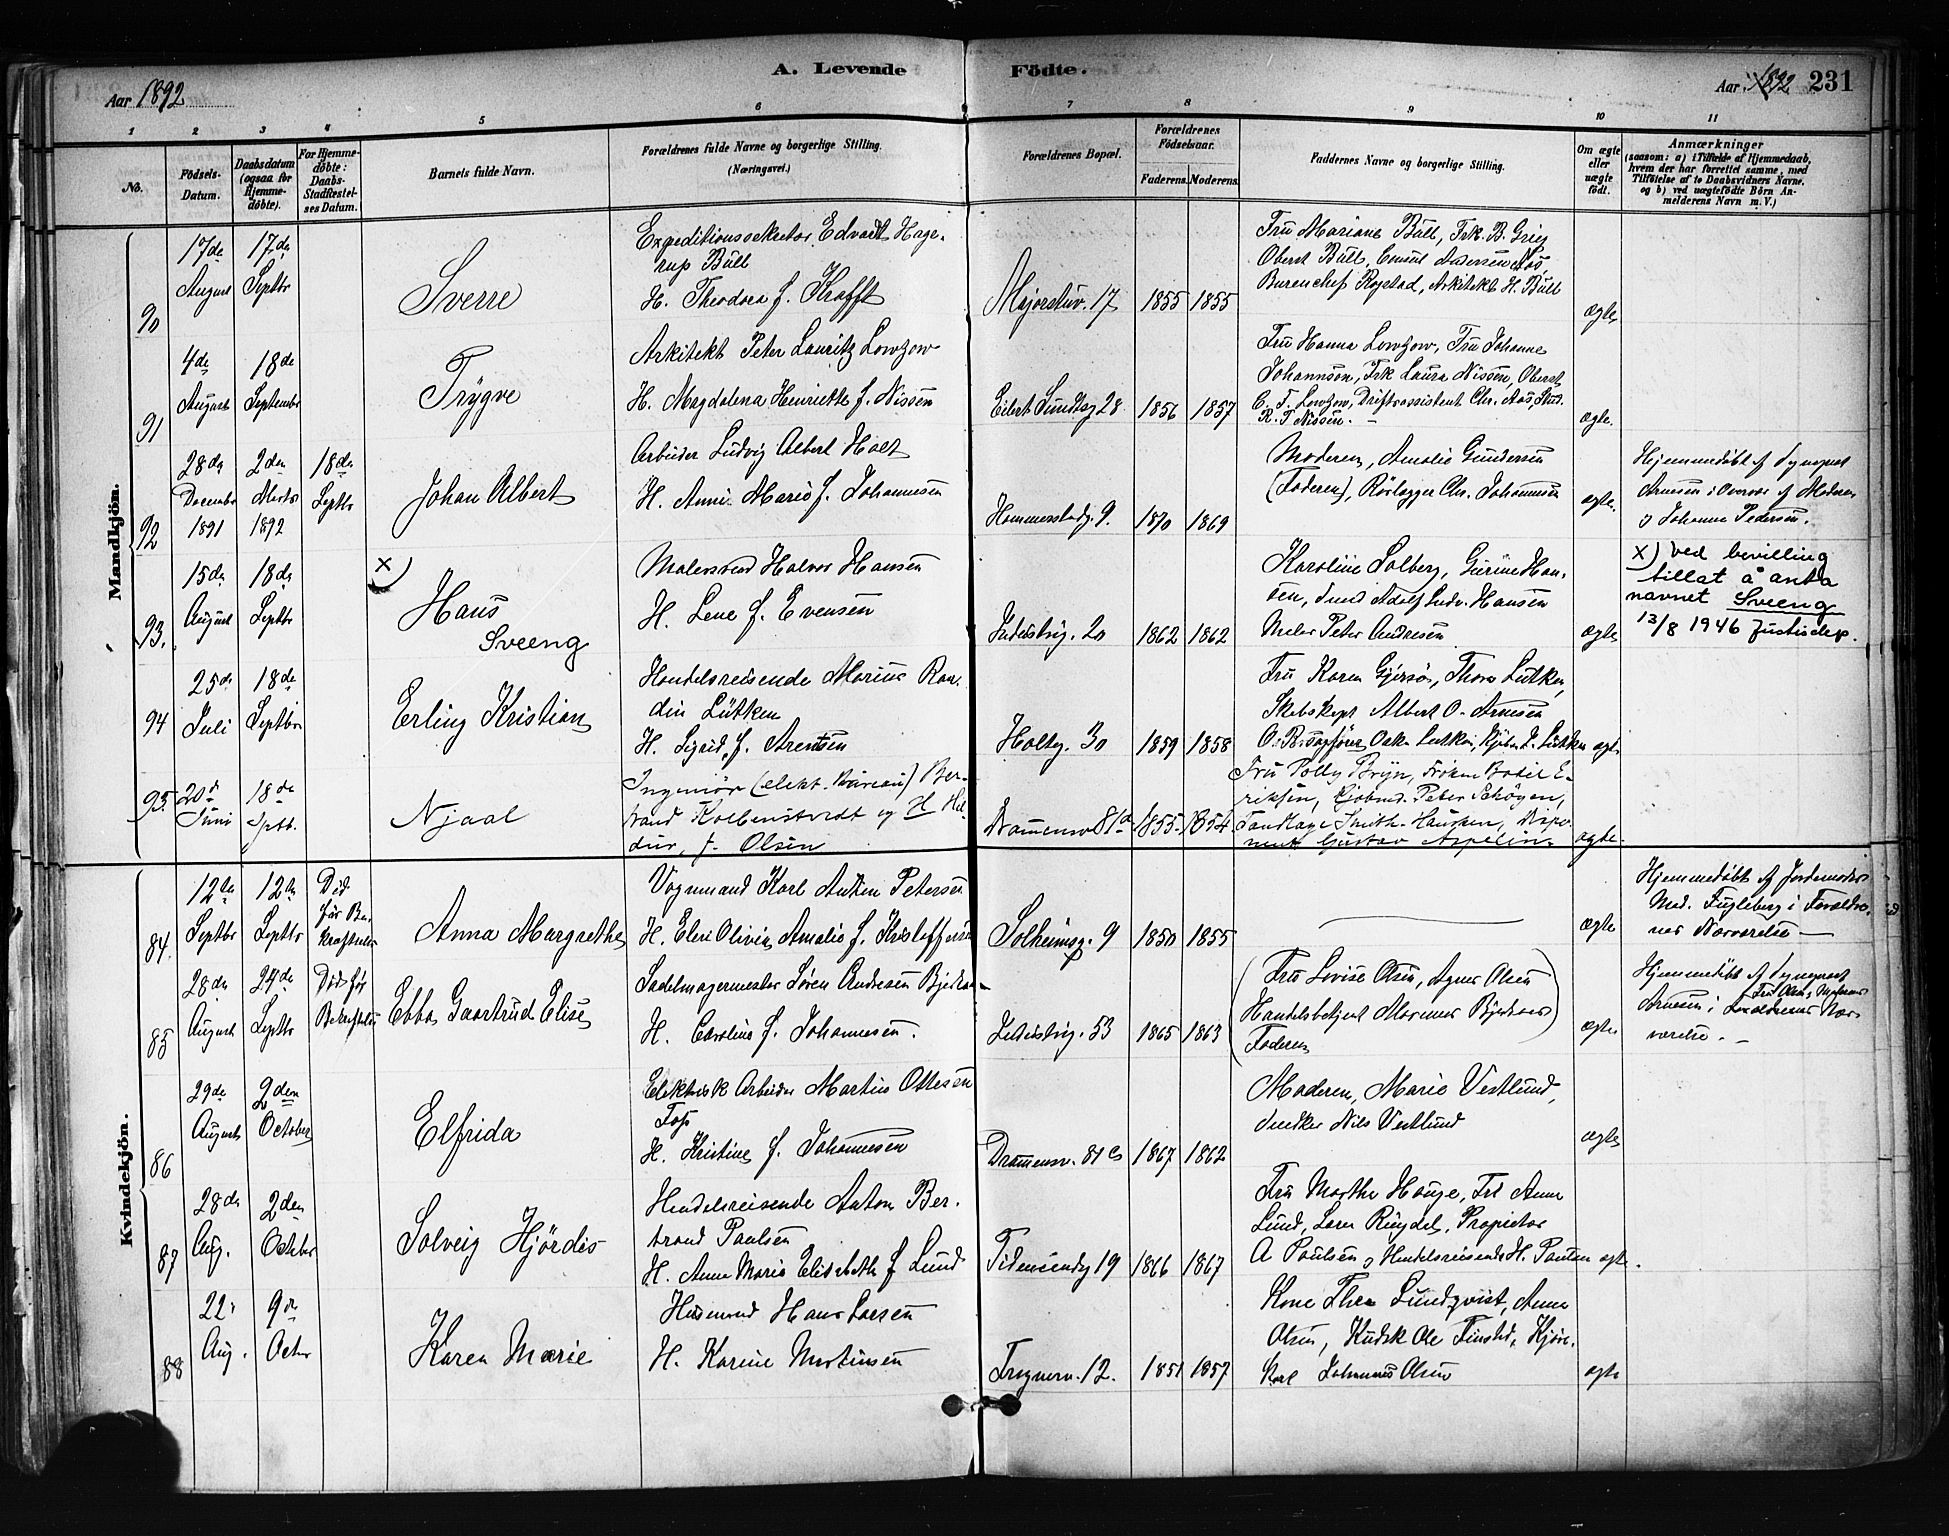 A. Levende Födte.
Aar 1892
Aar 1892 231
1 2 3 4 5 6 7 8 9 10 11
No.
Födsels-Datum.
Daabsdatum (ogsaa for Hjemme-döbte).
For Hjemme-döbte: Daabs-Stadfæstel-ses Datum.
Barnets fulde Navn.
Forældrenes fulde Navne og borgerlige Stilling. (Næringsvei.)
Forældrenes Bopæl.
Forældrenes Födselsaar.
Faderens. Moderens.
Faddernes Navne og borgerlige Stilling.
Om ægte eller uægte födt.
Anmærkninger
(saasom: a) i Tilfælde af Hjemmedaab,
hvem der har forrettet samme, med
Tilföielse af to Daabsvidners Navne,
og b) ved uægtefödte Börn An-
melderens Navn m. V.)
Mandkjön.
90 17de August 17de Septbr
Sverre
Expeditionssekretær Edvard Hage-
rup Bull
H. Theodora f. Krafft
Majorstuv. 17 1855 1855
Fru Mariane Bull, Frk. B. Grieg
Oberst Bull, Emmil Andersen Aas
Bureauchef Rogstad, Arkitekt H. Bull
ægte
91 4de August 18de September
Trygve
Arkitekt Peter Lauritz Lowzow
H. Magdalena Henriette f. Nissen
Eilert Sundtsg 28 1856 1857
Fru Hanna Lowzow, Fru Johanne
Johannsen, Frk Laura Nissen, Oberst
C. F. Lowzow, Driftsassistent Chr. Aas, Stud.
R. T Nissen. -
ægte.
92 28de December 1891 2den Marts 1892 18de Septbr
Johan Albert
Arbeider Ludvig Albert Holt
H. Anne Marie f. Johannesen
Hammerstadg. 9. 1870 1869
Moderen, Amalie Gundersen
(Faderen), Rörlægger Chr. Johannesen
ægte.
Hjemmedöbt af Syngprest
Arnesen i Overvær af Moderen
og Johanne Pedersen.
93. 15de August 18de Septbr
x)
Hans
Sveeng
Malersvend Halvor Hansen
H. Lene f. Evensen
Industrig. 20 1862 1862
Karoline Solberg, Gurine Han-
sen, Adolf Ludv. Hansen
Maler Peter Andresen
ægte
x) ved bevilling
tillat å anta
navnet Sveeng
13/8 1946 Justisdep.
94 25de Juli 18de Septbr
Erling Kristian
Handelsreisende Marius Ran-
din Lütken
H. Sigrid, f. Arentsen
Holteg. 30 1859 1858
Fru Karen Gjersøe, Thora Lütken,
Skibskapt Albert O. Arnesen
ægte
95. 20d Juni 18de Sptb.
Njaal
Ingeniør (elekt. Büreau) Ber-
trand Kolbenstvedt og H Hal-
dur, f. Olsen
Drammensv 81d 1855 1854
Fru Polly Bryn, Frøken Bodil E-
riksen, Kjøbmd. Peter Schøyen,
Tandlæge Smith-Hausken, Dispo-
nent Gustav Aspelin.
ægte.
Kvindekjön.
84. 12te Septbr 12te Septbr Död för Be-kræftelse
Anna Margrethe
Vognmand Karl Anton Petersen
H. Elen Olivia Amalie f. Kristoffersen
Solheimsg. 9 1850 1855
ægte
Hjemmedöbt af Jordemoder
Mad. Fugleberg i Forældre-
nes Nærværelse —
85 28de August 24de Septbr Död för Bekræftelse
Ebba Gaartrud Elise
Sadelmagermester Søren Andresen Bjerkaas
H. Caroline f. Johannesen.
Industrig. 53 1865 1863
(Fru Lovise Olsen, Agnes Olsen
Handelsbetjent Marinus Bjerkaas)
Faderen
ægte
Hjemmedöbt af Syngprest
Arnesen i Forældrenes Nær-
værelse. -
86 29de August 2den October
Elfrida
Elektrisk Arbeider Martin Ottesen
Foss
H. Kristine f. Johannesen
Drammensv. 81c 1867 1862
Moderen, Marie Vestlund,
Snedker Nils Vestlund
ægte
87 28de Aug. 2den October
Solveig Hjördis
Handelsreisende Anton Ber-
trand Paulsen
H. Anna Marie Elisabeth f Lund
Tidemandsg 19 1866 1867
Fru Marthe Hauge, Frk Anna
Lund, Lars Ringdal, Propietær
A Paulsen og Handelsreisende H. Paulsen
ægte.
88 22. Aug. 9de Octor
Karen Marie
Husmand Hans Larsen
H. Karine Martinsen
Frognerv. 12. 1851 1857
Kone Thea Lundqvist, Anna
Olsen, Kudsk Ole Finstad, Kjöre-
karl Johannes Olsen
ægte